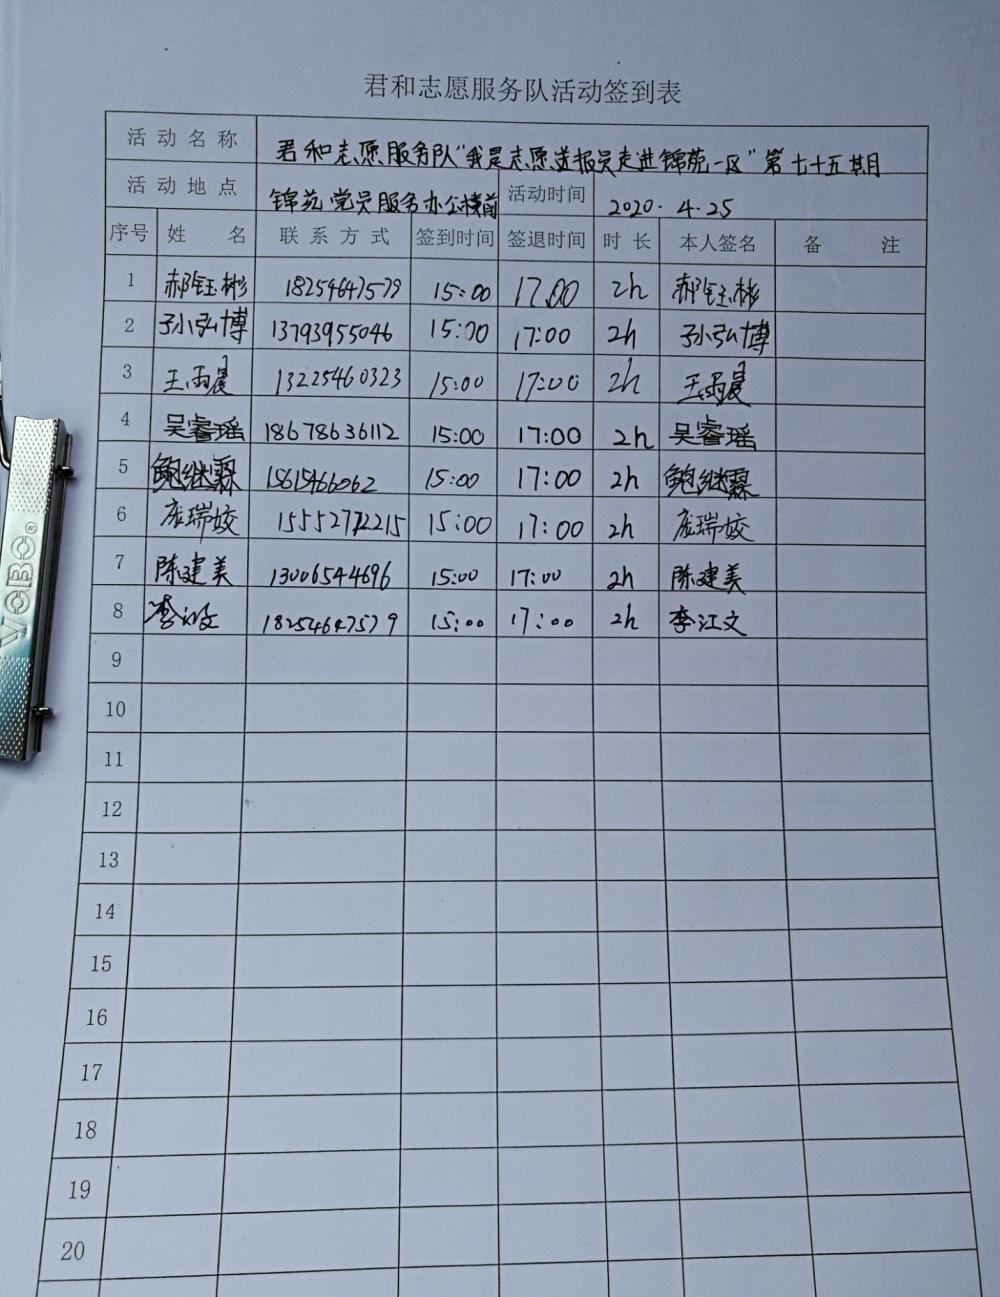 君和志愿服务队活动签到表
活动名称 君和志愿服务队"我是志愿送报员走进锦苑一区"第七十五期
活动地点 锦苑党员服务办公楼前 活动时间 2020.4.25
序号 姓名 联系方式 签到时间 签退时间 时长 本人签名 备注
1 郝钰彬 18254647579 15:00 17:00 2h 郝钰彬
2 孙弘博 13793955046 15:00 17:00 2h 孙弘博
3 王雨晨 13225460323 15:00 17:00 2h 王雨晨
4 吴睿瑶 18678636112 15:00 17:00 2h 吴睿瑶
5 鲍继霖 15615466062 15:00 17:00 2h 鲍继霖
6 庞瑞姣 15552772215 15:00 17:00 2h 庞瑞姣
7 陈建美 13006544696 15:00 17:00 2h 陈建美
8 李江文 18254647579 15:00 17:00 2h 李江文
9
10
11
12
13
14
15
16
17
18
19
20
WOBO®